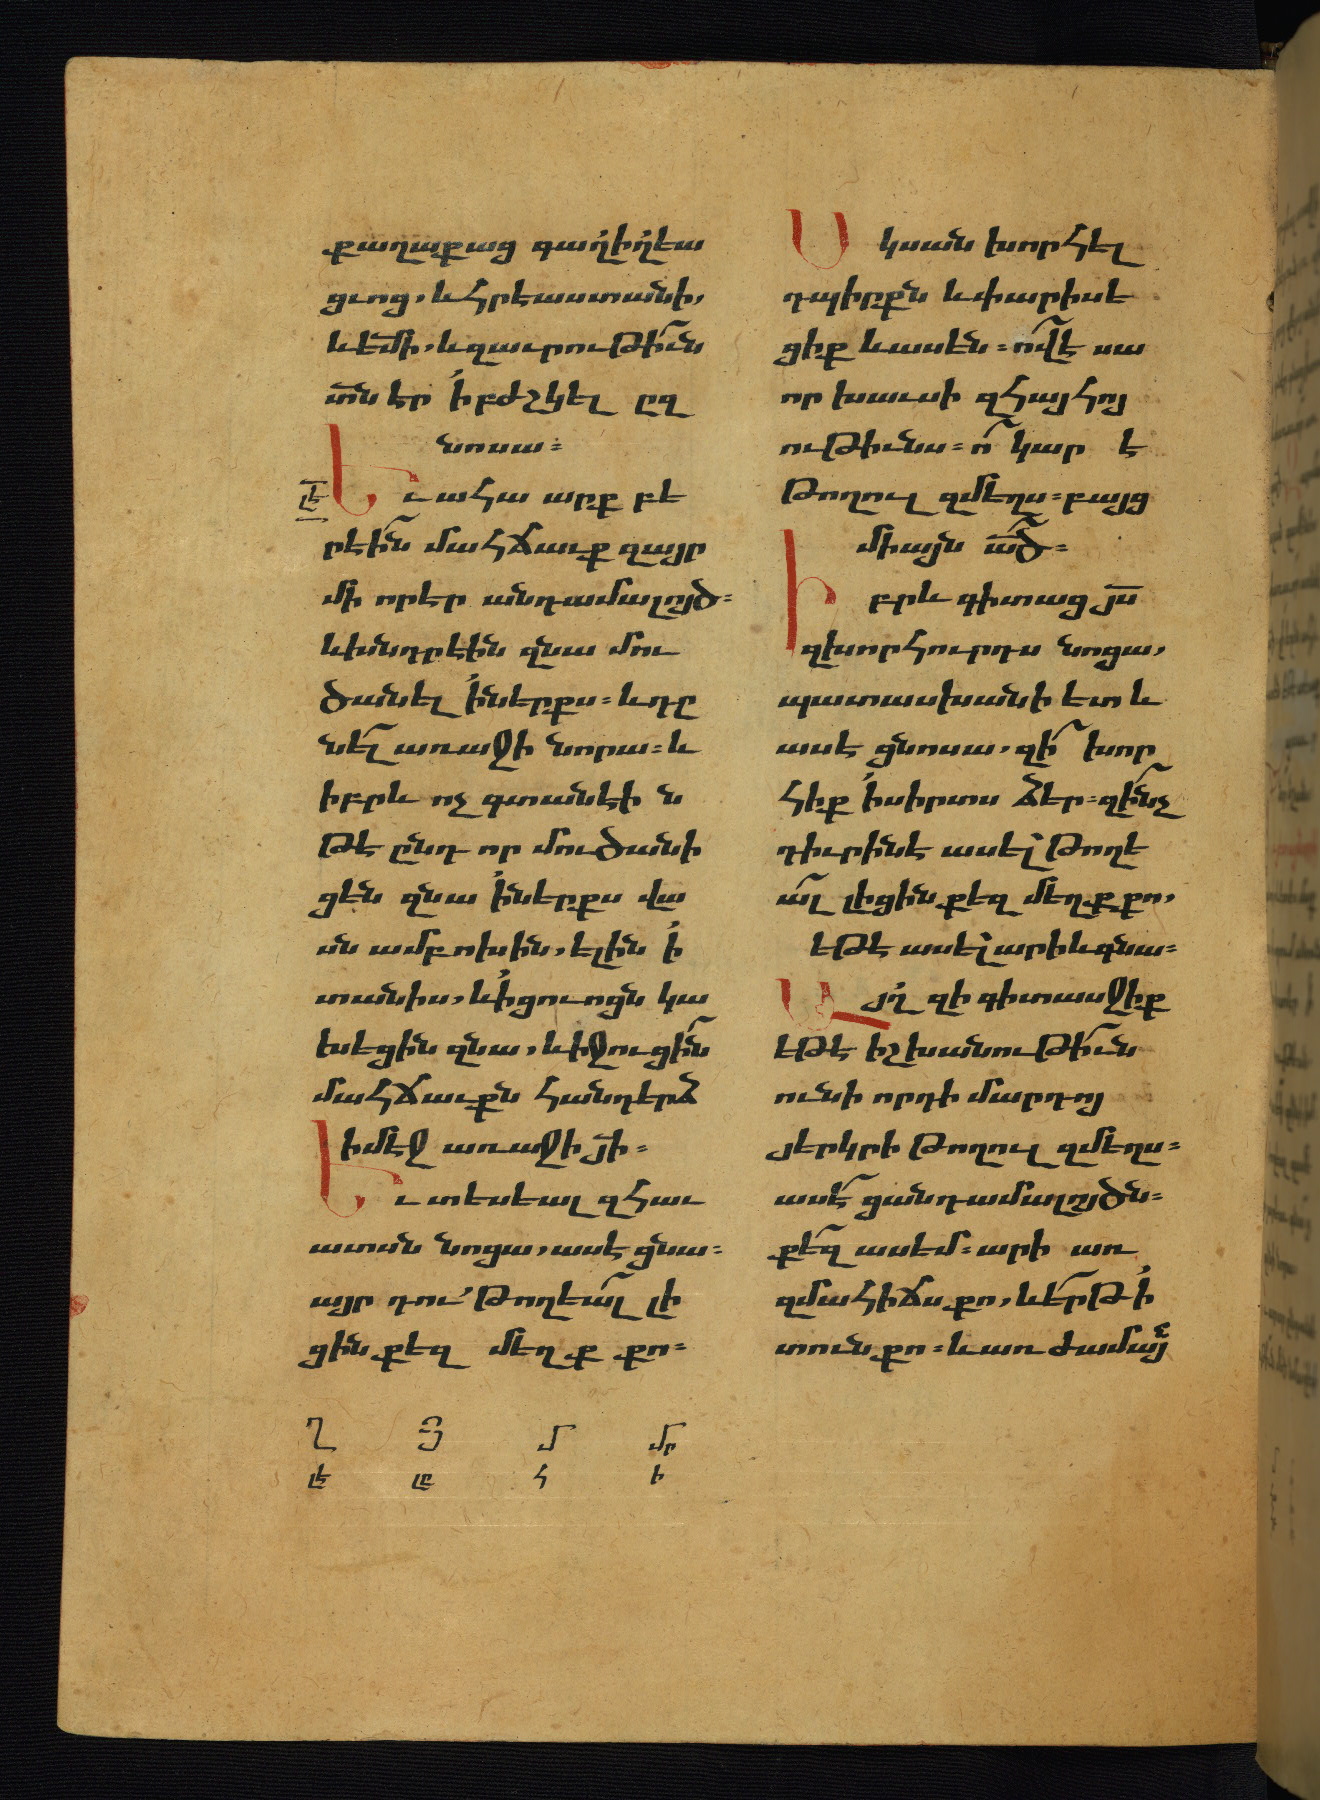 քաղաքաց գաղիղեա
ցւոց, և հրեաստանի,
և ե՟մի, և զաւրութի՟ւն
տ՟ն էր ի բժշկել ըզ
նոսա։
ԺԷ
Եւ ահա արք բե
րեի՟ն մահճաւք զայր
մի որ էր անդամալոյծ։
և խնդրեին զնա մու
ծանել ի ներքս։ և դը
նե՟լ առաջի նորա։ և
իբրև ոչ գտանեի ն
թէ ընդ որ մուծանի
ցեն զնա ի ներքս վա
սն ամբոխին, ելին ի
տանիս, և ի ցուոցն կա
խեցին զնա, և իջուցի՟ն
մահճաւքն հանդերձ
ի մէջ առաջի յ՟ի։
Եւ տեսեալ զհաւ
ատսն նոցա, ասէ ցնա։
այր դու՛ թողեա՟լ լի
ցին քեզ մեղք քո։
Սկսան խորհել
դպիրքն և փարիսե
ցիք և ասեն։ ո՟վ է սա
որ խաւսի զհայհոյ
ութիւնս։ ո՟ կար է
թողուլ զմեղս։ բայց
միայն ա՟ծ։
Իբրև գիտաց յ՟ս
զխորհուրդս նոցա,
պատասխանի ետ և
ասէ ցնոսա, զի՟ խոր
հիք ի սիրտս ձեր։ զի՟նչ
դիւրին է ասել՝ թողե
ա՟լ լիցին քեզ մեղք քո,
եթէ ասել՝ արի և գնա։
Այղ զի գիտասջիք
եթէ իշխանութի՟ւն
ունի որդի մարդոյ
յերկրի թողուլ զմեղս։
ասէ՟ ցանդամալոյծն։
քե՟զ ասեմ։ արի առ
զմահիճս քո, և ե՟րթ ի
տուն քո։ և առժամայ՟ն
Ղ Յ Մ մր
ԺԷ ԺԸ Հ Ի